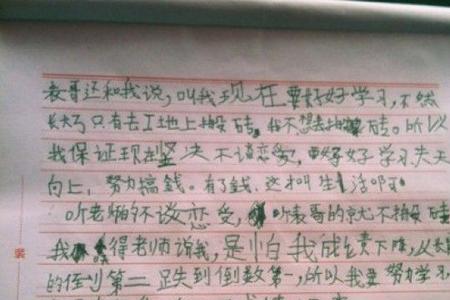 表哥还和我说,叫我现在要好好学习,不然
长大了只有去工地上搬砖。我不想去搬砖。所以
我保证现在坚决不谈恋爱,要好好学习天天
向上,努力搞錢。有了錢,这才叫生活即可
听老师的不谈恋爱,听表哥的就不搬砖
我得老师说我,是怕我成绩下降,以我
的倒第二跌到倒数第一,所以我要努力学习,